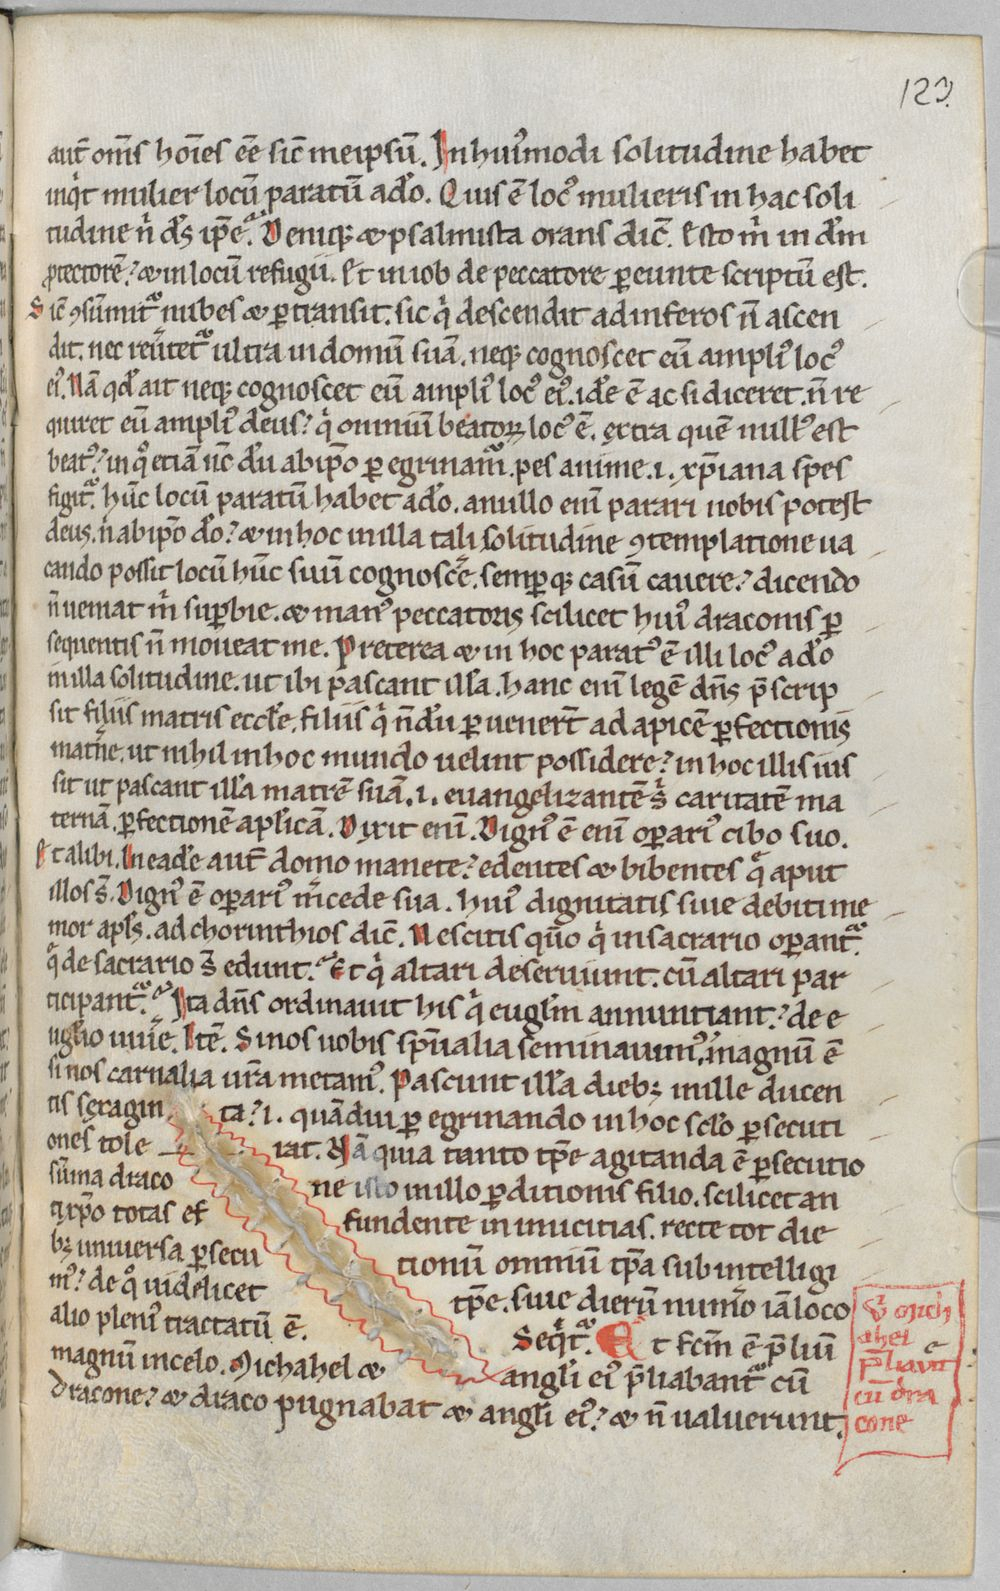 123.
aut̄ om̅s hoīes eē sic̄ meipsū. In hui᷒modi solitudine habet
inqͥt mulier locū paratū a dō. Quis ē locꝰ mulieris in hac soli
tudine nͥ ds̄ ip̄e. Deniqꝫ & psalmista orans dic̄. Esto mͥ in dm̄
ꝓtectorē. & in locū refugii. Et in iob de peccatore ꝑeunte scriptū est.
Sic̄ ꝯsumitᷣ nubes & ꝑtransit. sic qͥ descendit ad inferos n̄ ascen
dit. nec reūtet᷑ ultra in domū suā. neqꝫ cognoscet eū ampliꝰ locꝰ
eiꝰ. Nā qd̄ ait neqꝫ cognoscet eū ampliꝰ locꝰ eiꝰ. idē ē ac si diceret. n̄ re
quiret eū ampliꝰ deus. qͥ omniū beatoꝝ locꝰ ē. extra quē nullꝰ est
beatꝰ. in qͦ etiā nc̄ dū ab ip̄o ꝑegrinam᷑. pes anime .i. xp̄iana spes
figit᷑. hūc locū paratū habet a dō. a nullo enī parari nobis potest
deus. nͥ ab ip̄o dō. & in hoc in illa tali solitudine ꝯtemplatione ua
cando possit locū hūc suum cognoscē. semꝑqꝫ casū cauere. dicendo
n̄ ueniat mͥ suꝑbie. & manꝰ peccatoris scilicet huiꝰ draconis ꝑ
sequentis n̄ moueat me. Preterea & in hoc paratꝰ ē illi locꝰ a dō
in illa solitudine. ut ibi pascant illā. hanc enī legē dn̄s p̄scrip
sit filiis matris eccl̄e. filiis qͥ n̄dū ꝑuenert̄ ad apicē ꝑfectionis
matn̄e. ut nihil in hoc mundo uelint possidere. in hoc illis ius
sit ut pascant illā matrē suā. .i. euangelizantēs caritatē ma
ternā. ꝑfectionē apl̄icā. Dixit enī. Dignꝰ ē enī oꝑariꝰ cibo suo.
Et alibi. In eadē aut̄ domo manete. edentes & bibentes qͤ aput
illos s̄. Dignꝰ ē oꝑariꝰ m̄cede sua. huiꝰ dignitatis siue debiti me
mor apls̄. ad chorinthios dic̄. Nescitis qm̄o qͥ in sacrario oꝑant᷑
qͤ de sacrario s̄ edunt. Et qͥ altari deseruiunt. cū altari par
ticipant᷑. Ita dn̄s ordinauit his qͥ eugl̄m annuntiant. de e
ugl̄io uiuē. Itē. Si nos uobis sp̄ualia seminauimꝰ. magnū ē
si nos carnalia ur̄a metamꝰ. Pascunt illā diebꝫ mille ducen
tis sexagin ta. .i. quādiu ꝑegrinando in hoc sclo ꝑsecuti
ones tole rat. Nā quia tanto tp̄e agitanda ē ꝑsecutio
sūma draco ne isto nullo ꝑditionis filio. scilicet an
tixp̄o totas ef fundente inimicitias. recte tot die
bꝫ uniuersa ꝑsecu tionū omniū tp̄a subintelligi
mꝰ. de qͦ uidelicet tp̄e. siue dierū numō iā loco
alio pleniꝰ tractatū ē. Seqͥt᷑. Et fcm̄ ē p̄liū
magnū in celo. Michahel & angl̄i eiꝰ p̄liabant᷑ cū
dracone. & draco pugnabat & angl̄i eiꝰ. & n̄ ualuerunt.
mich
ahel
p̄liauit
cū dra
cone